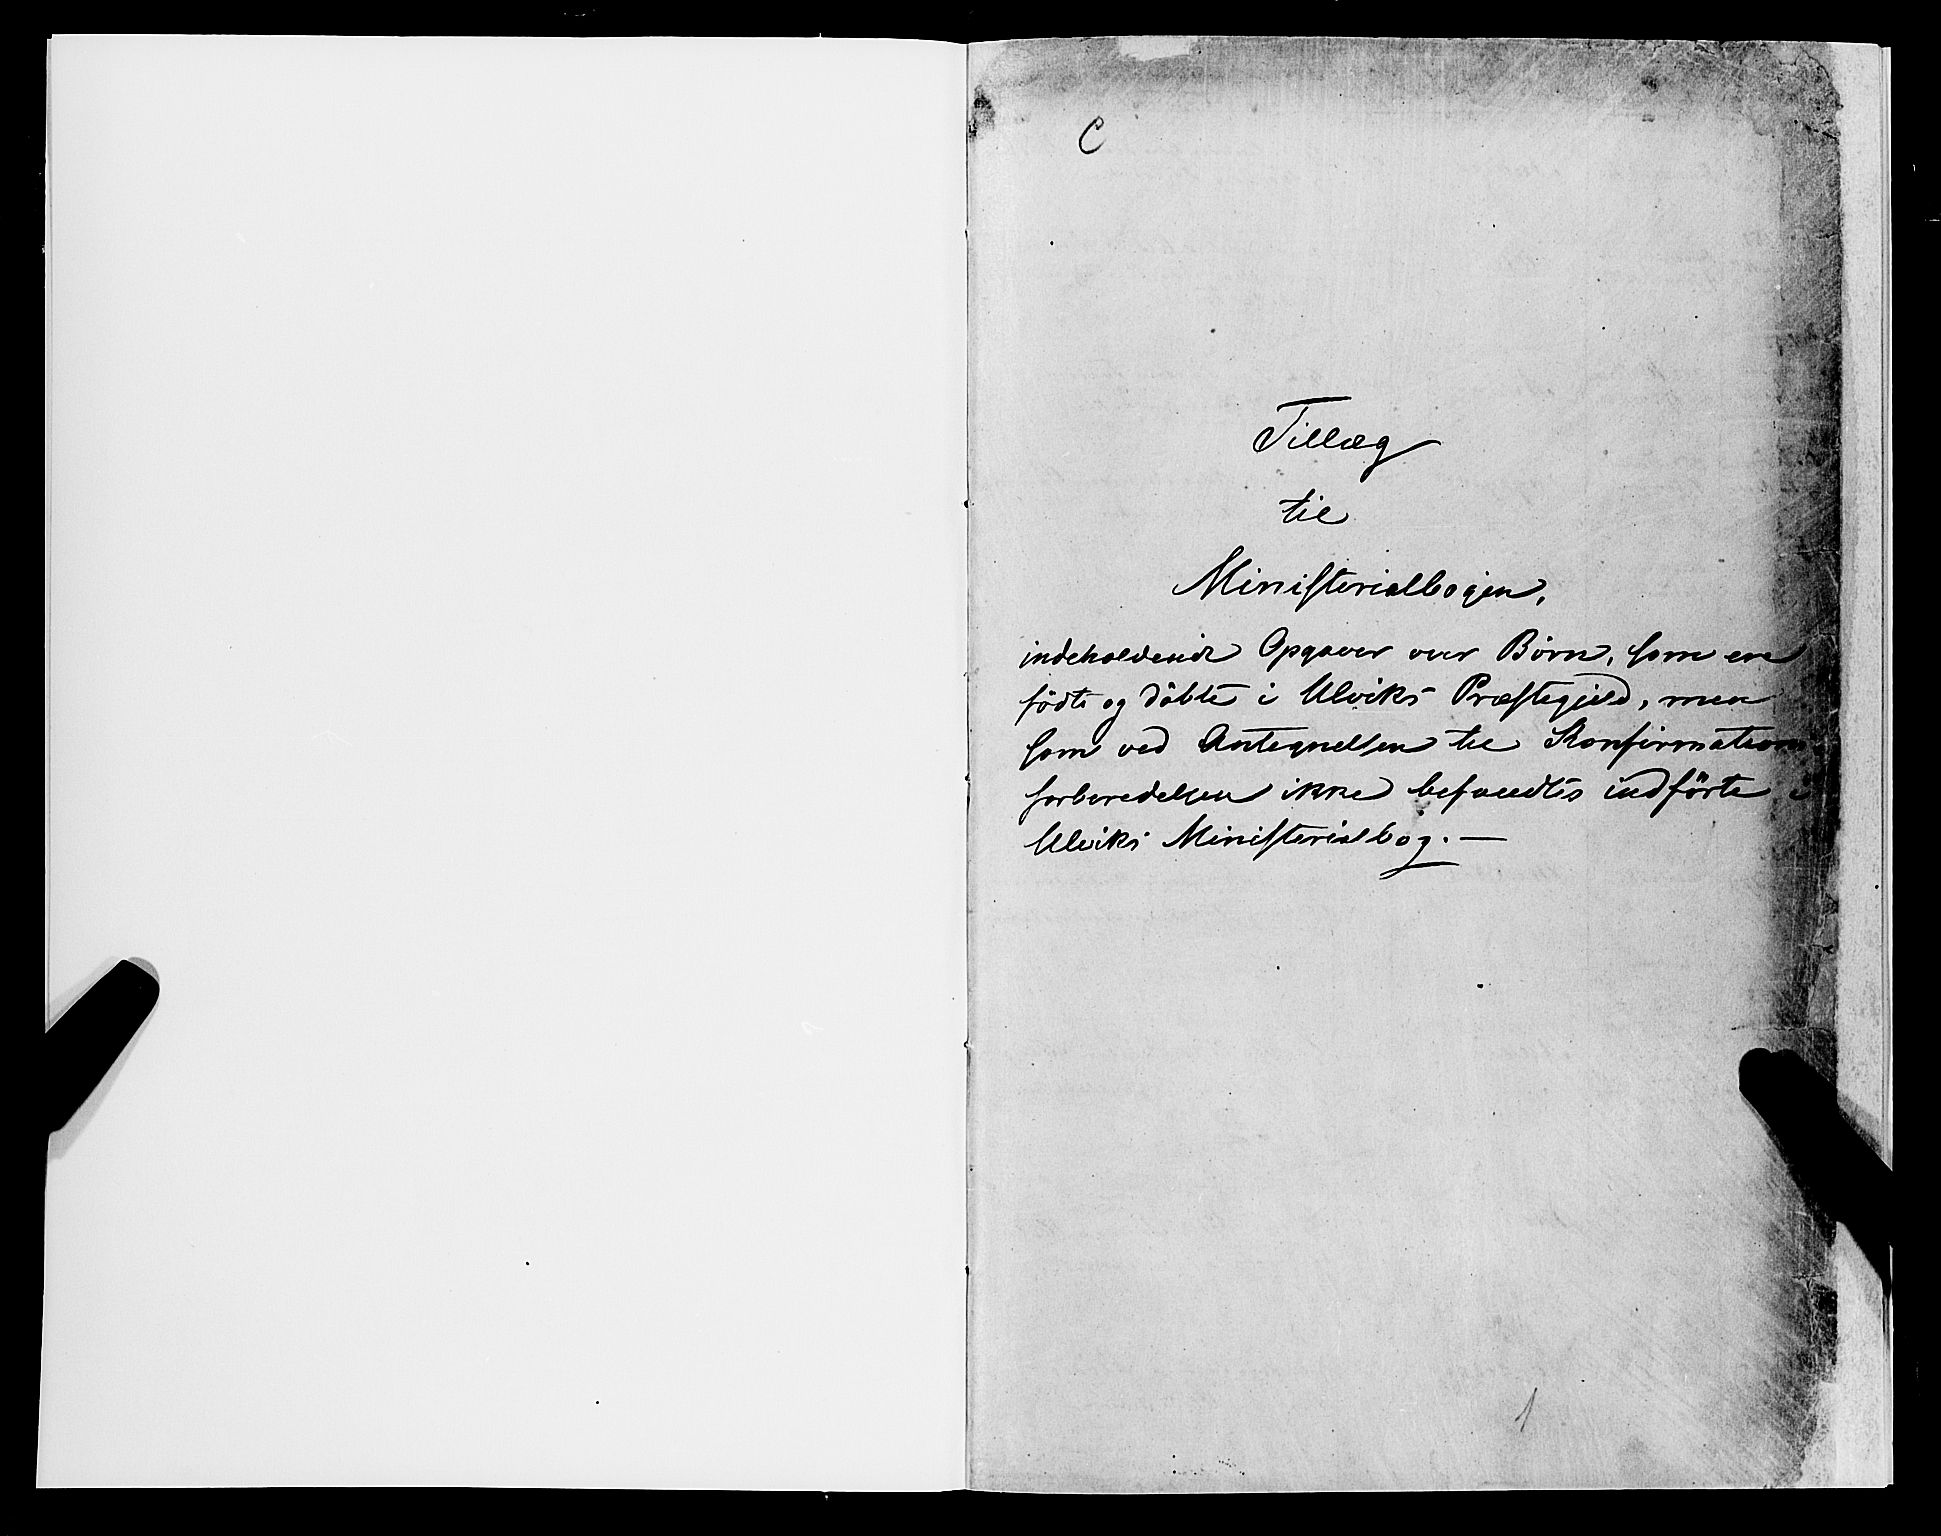 C
Tillæg
til
Ministerialbogen,
indeholdende Opgaver over Börn, som ere
födte og döbte i Ulviks Præstegjeld, men
som ved Antegnelsen til Konfirmations
forberedelsen ikke befandtes indförte i
Ulviks Ministerialbog. —
1